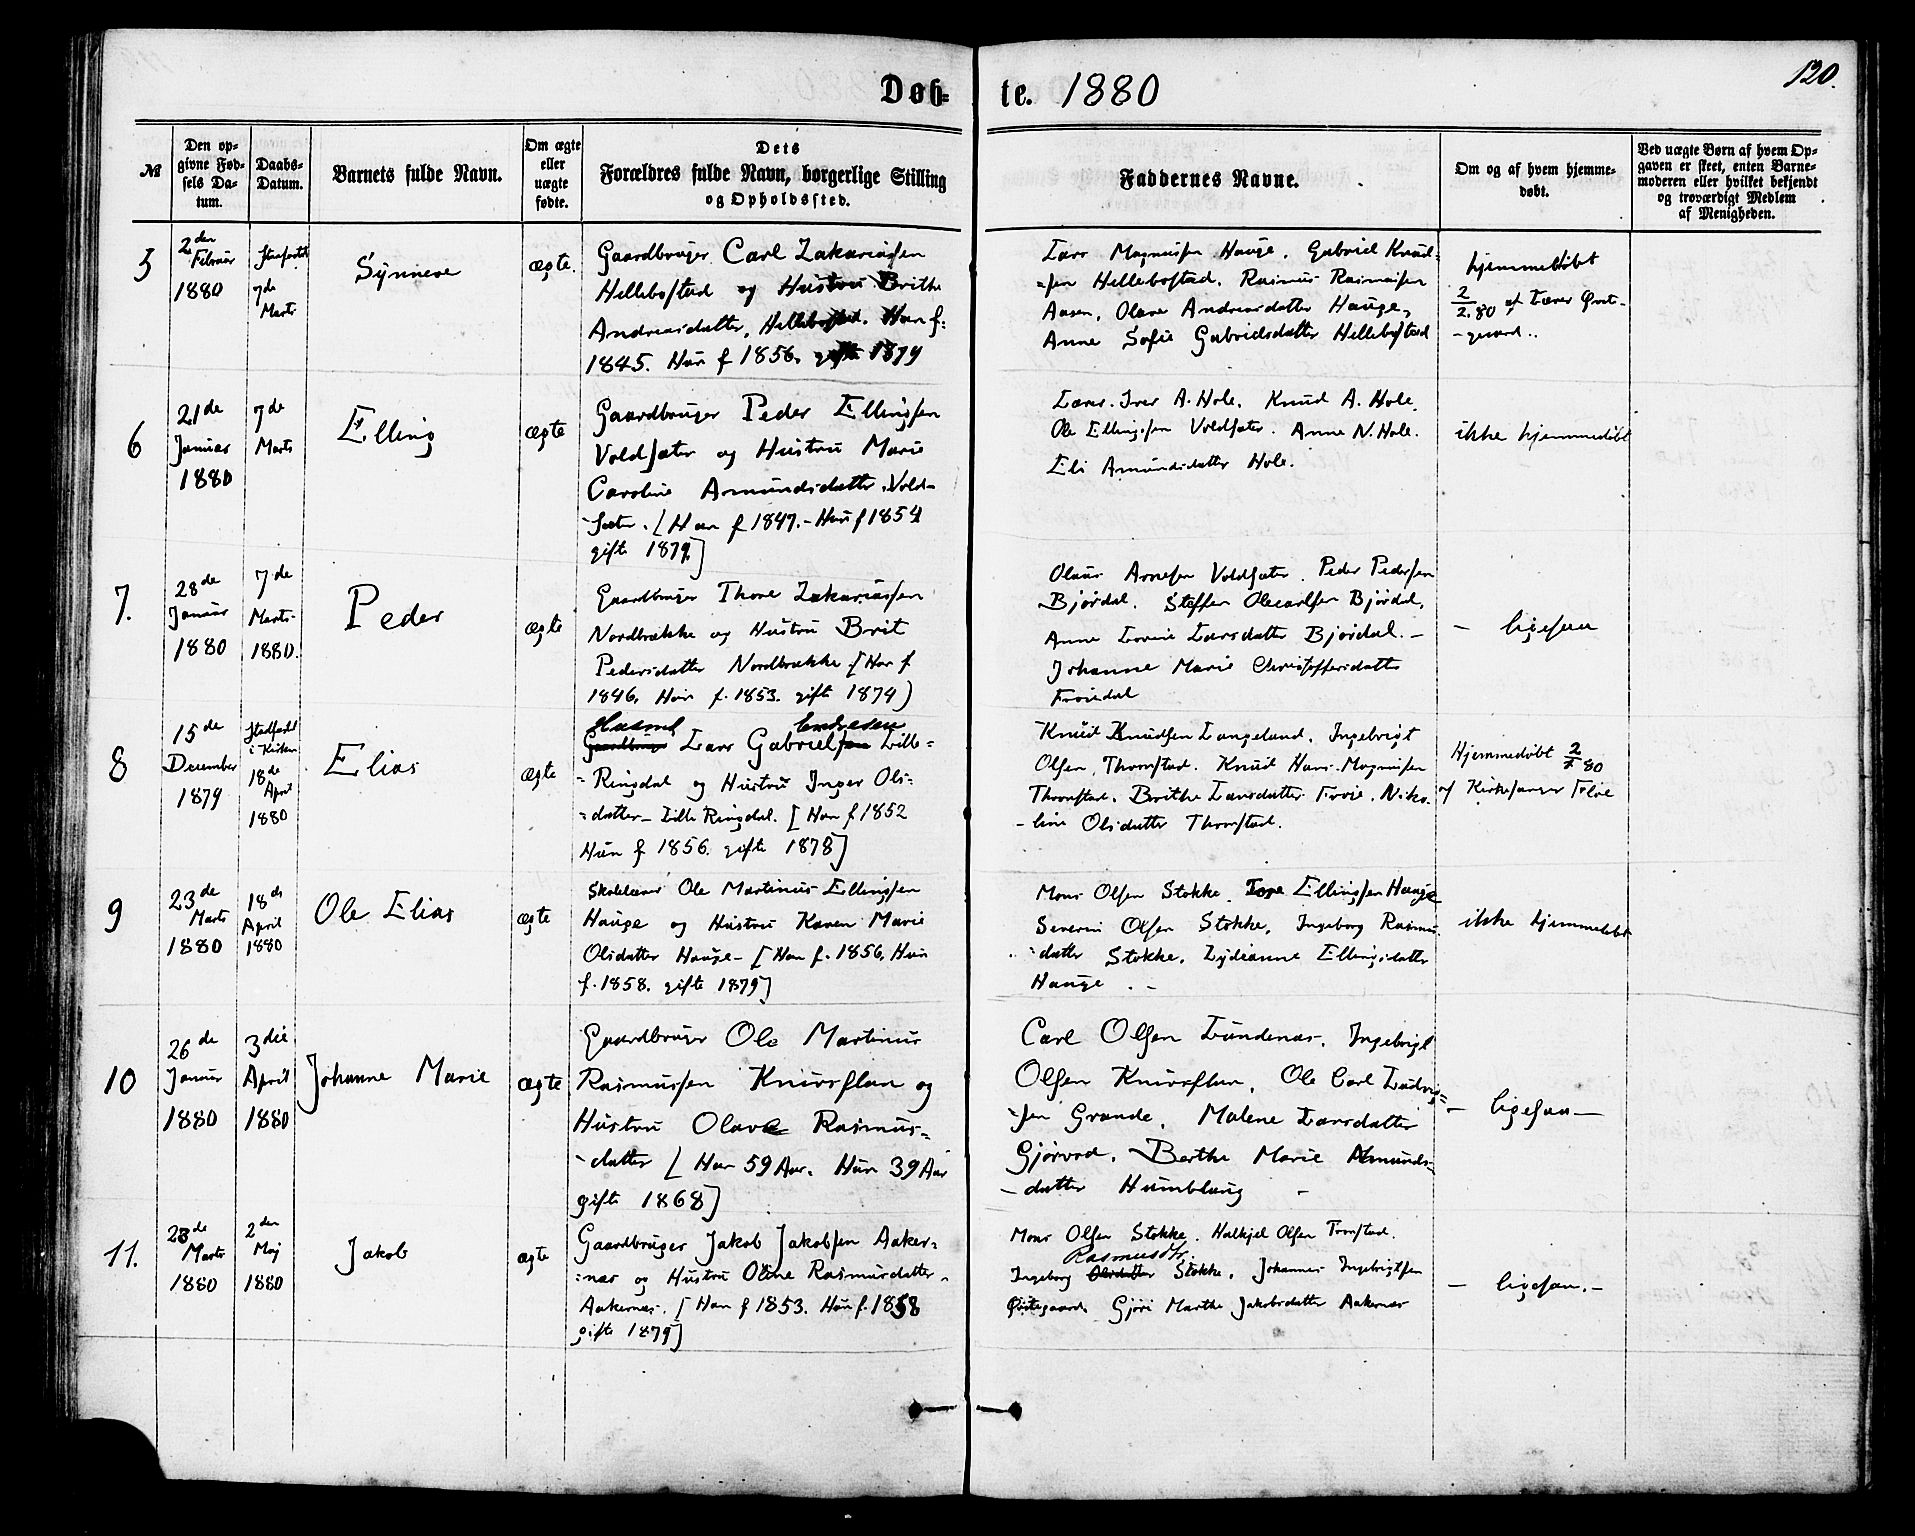 120.
Døb= te. 1880
№
Den op-
givne Fød-
sels Da-
tum.
Daabs-
Datum.
Barnets fulde Navn.
Om ægte
eller
uægte
fødte.
Dets
Forældres fulde Navn, borgerlige Stilling
og Opholdssted.
Faddernes Navne.
Om og af hvem hjemme-
døbt.
Ved uægte Børn af hvem Op-
gaven er skeet, enten Barne-
moderen eller hvilket bekjendt
og troværdigt Medlem
af Menigheden.
5
2den
Februar
1880
7de
Marts
Synneve
ægte.
Gaardbruger Carl Zakariassen
Hellebostad og Hustru Brithe
Andreasdatter, Hellebostad. Han f.
1845. Hun f 1856. gifte 1879
Lars Magnussen Hauge. Gabriel Knud=
=sen Hellebostad. Rasmus Rasmussen
Aasen, Olave Andreasdatter Hauge,
Anne Sofie Gabrielsdatter Hellebostad
hjemmedøbt
2/2.80 af Lærer Øvst-
-gaard..
6
21de
Januar
1880
7de
Marts
Elling
ægte
Gaardbruger Peder Ellingsen
Voldsæter og Hustru Marie
Caroline Amundsdatter Vold-
-sæter. [Han f 1847.- Hun f 1854
gifte 1879]
Lærer. Iver A. Hole. Knud A. Hole.
Ole Ellingssen Voldsæter. Anne N. Hole.
Eli Amundsdatter Hole.
ikke hjemmedøbt
7.
28de
Januar
1880
7de
Marts-
1880.
Peder
ægte
Gaardbruger Thore Zakariassen
Nordbrække og Hustru Brit
Pedersdatter Nordbrække. [Han f
1846, Hun f. 1853. gifte 1874)
Olaus Arnesen Voldsæter. Peder Pedersen
Bjørdal. Steffen Olecarlsen Bjørdal,
Anne Lovise Larsdatter Bjørdal. -
Johanne Marie Christoffersdatter
Frøidal
- ligesaa
8
15de
December
1879
Stadfæstet
i Kirken
18de
April
1880
Elias
ægte
Husmd Endresen
Gaardbruger Lars Gabrielsen Lille=
=Ringdal og Hustru Inger Ols=
=datter- Lille Ringdal. [Han f 1852
Hun f 1856. gifte 1878]
Knud Knudsen Langeland, Ingebrigt
Olsen, Thomstad. Knud Hans. Magnussen
Thomstad. Brithe Larsdatter Frøie. Niko-
-line Olsdatter Thomstad.
Hjemmedøbt 2/1 80
af Kirkesanger Floe
9
23de
Marts
1880
18de
April
1880
Ole Elias
ægte
Skolelærer Ole Martinus Ellingsen
Hauge og Hustru Karen Marie
Olsdatter Hauge- [Han f. 1856. Hun
f. 1858. gifte 1879]
Mons Olsen Stokke. Tore Ellingsen Hauge
Severin Olsen Stokke, Ingeborg Rasmus
=datter Stokke. Lydianne Ellingsdatter
Hauge . -
ikke hjemmedøbt
10
26de
Januar
1880
3die
April
1880
Johanne Marie
ægte
Gaardbruger Ole Martinus
Rasmussen Knivsflaa og
Hustru Olave Rasmus=
-datter [Han 59 Aar. Hun 39 Aar
gifte 1868]
Carl Olsen Lundenæs. Ingebrigt
Olsen Knivsflaa, Ole Carl Ludvig=
-sen Grande. Malene Larsdatter
Gjørvad. Berthe Marie Amunds=
-datter Humblang -
- ligesaa -
11.
28de
Marts
1880
2den
Maj
1880
Jakob
ægte
Gaardbruger Jakob Jakobsen Aaker=
=næs og Hustru Oline Rasmusdatter.
Aakernæs. [Han f 1853. Hun f. 1858
gifte 1879]
Mons Olsen Stokke. Halkjel Olsen Tomstad.
Rasmusdtr.
Ingeborg Olsdatter Stokke. Johannes Ingebrigtsen
Østegaard. Gjøri Marthe Jakobsdatter Aakernæs
- ligesaa. -